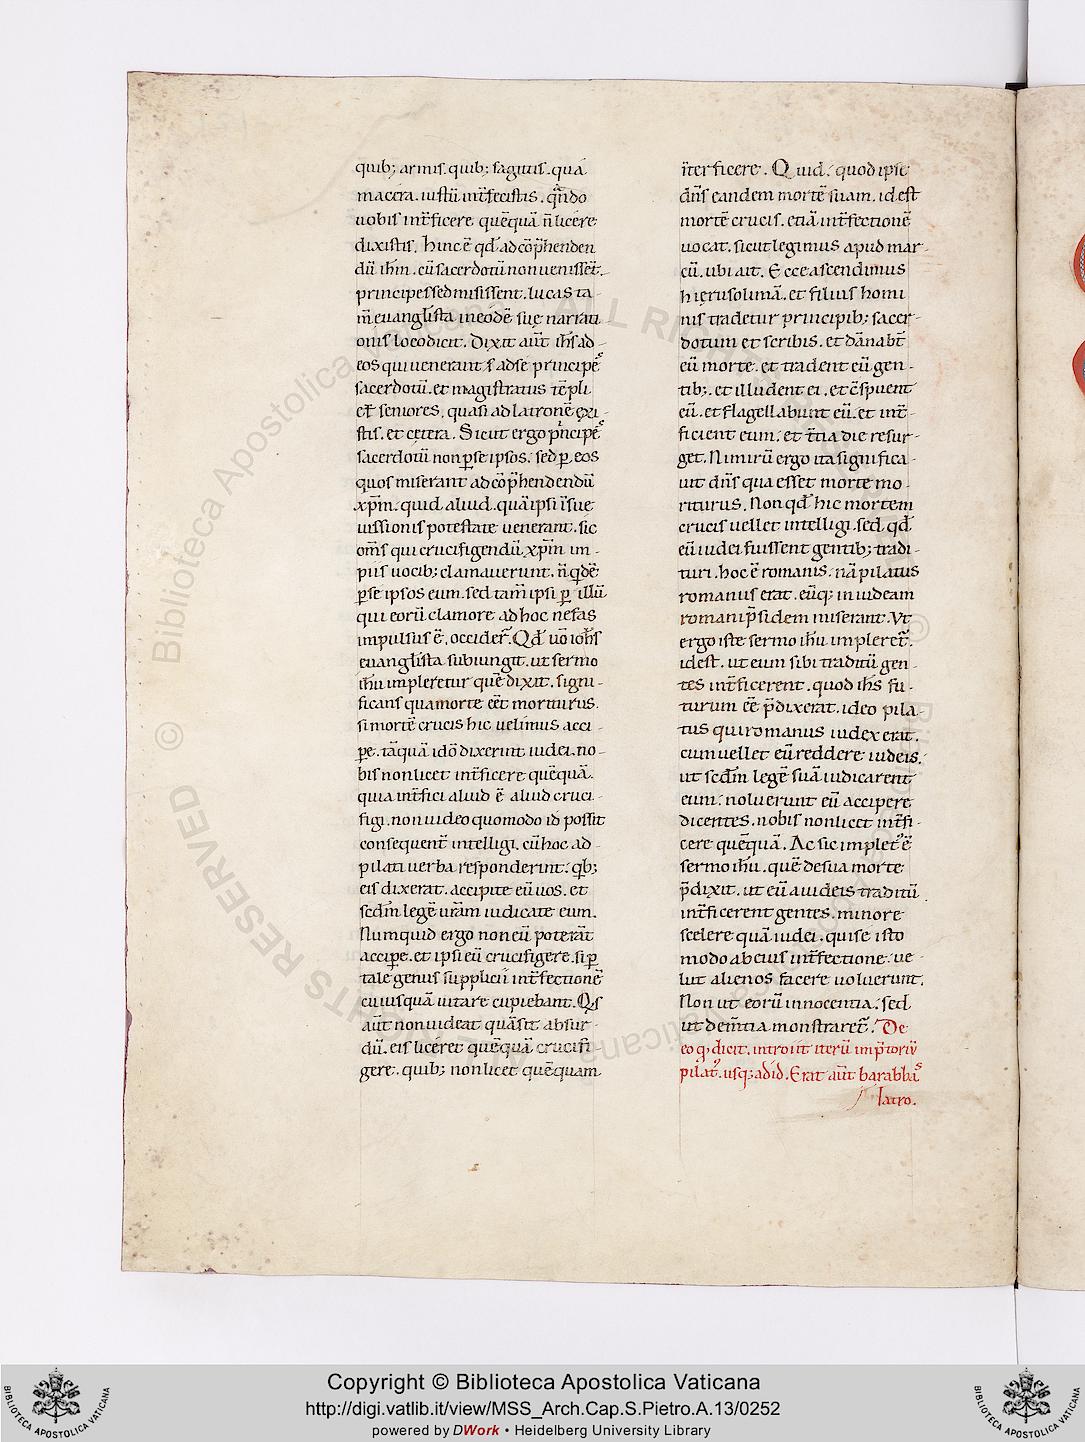 quib; armis. quib; sagittis. qua
macera. iustũ int̃fecistis. qñdo
uobis int̃ficere quẽquã ñ licere
dixistis. hinc ẽ qđ ad cõp̃henden
dũ ihm̃. cũ sacerdotũ non uenissẽt.
principes sed misissent. lucas ta
m̃ euanglista in eodẽ suę narrati
onis loco dicit. Dixit aũt ihs̃ ad
eos qui uenerant ad se principẽˢ
sacerdotũ. et magistratus tẽpli
et seniores. quasi ad latronẽ exi
stis. et cetera. Sicut ergo p̃ncipẽˢ
sacerdotũ non ꝑ se ipsos. sed ꝑ eos
quos miserant ad cõp̃hendendũ
xp̃m. quid aliud. quã ipsi ĩ sue
iussionis potestate uenerant. sic
om̃s qui crucifigendũ xp̃m im
piis uocib; clamauerunt. ñ qdẽ
ꝑ se ipsos eum. sed tam̃ ipsi ꝑ illũ
qui eorũ clamore ad hoc nefas
impulsus ẽ. occider̃. Qđ uõ iohs̃
euanglista subiungit. ut sermo
ihũ impleretur quẽ dixit. signi
ficans qua morte eẽt moriturus.
si mortẽ crucis hic uelimus acci
ꝑe. tãquã idõ dixerint iudei. no
bis non licet int̃ficere quẽquã.
quia int̃fici aliud ẽ aliud cruci
figi. non uideo quomodo id possit
consequent̃ intelligi. cũ hoc ad
pilati uerba responderint. qb;
eis dixerat. accipite eũ uos. et
scđm legẽ ur̃am iudicate eum.
Numquid ergo non eũ poterãt
acciꝑe. et ipsi eũ crucifigere. si ꝑ
tale genus supplicii int̃fectionẽ
cuiusquã uitare cupiebant. Qis
aũt non uideat quã sit absur
dũ. eis liceret quẽquã crucifi
gere. quib; non licet quẽquam
ĩterficere. Quid. quod ipse
dñs eandem mortẽ suam. id est
mortẽ crucis. etiã int̃fectionẽ
uocat. sicut legimus apud mar
cũ. ubi ait. Ecce ascendimus
hierusolimã. et filius homi
nis tradetur principib; sacer
dotum et scribis. et dãnabt̃
eũ morte. et tradent eũ gen
tib;. et illudent ei. et cs̃puent
eũ. et flagellabunt eũ. et int̃
ficient eum. et t̃tia die resur
get. Nimirũ ergo ita significa
uit dñs qua esset morte mo
riturus. Non qđ hic mortem
crucis uellet intelligi. sed qđ
eũ iudei fuissent gentib; tradi
turi. hoc ẽ romanis. nã pilatus
romanus erat. eũq; in iudeam
romani p̃sidem miserant. Ut
ergo iste sermo ihũ impleret̃.
id est. ut eum sibi traditũ gen
tes int̃ficerent. quod ihs̃ fu
turum eẽ p̃dixerat. ideo pila
tus qui romanus iudex erat.
cum uellet eũ reddere iudeis.
ut scđm legẽ suã iudicarent
eum. noluerunt eũ accipere
dicentes. nobis non licet int̃fi
cere quẽquã. Ac sic implet̃ ẽ
sermo ihũ. quẽ de sua morte
p̃dixit. ut eũ a iudeis traditũ
int̃ficerent gentes. minore
scelere quã iudei. qui se isto
modo ab eius int̃fectione. ue
lut alienos facere uoluerunt.
Non ut eorũ innocentia. sed
ut dem̃tia monstraret̃. De
eo q̃ dicit. introiit iterũ in p̃toriũ
pilat᷒. usq; ad id. Erat aũt barabbãˢ
latro.
Copyright © Biblioteca Apostolica Vaticana
http://digi.vatlib.it/view/MSS_Arch.Cap.S.Pietro.A.13/0252
powered by DWork • Heidelberg University Library
BIBLIOTECA APOSTOLICA VATICANA
BIBLIOTECA APOSTOLICA VATICANA
© Biblioteca Apostolica Vaticana ALL RIGHTS RESERVED
© Biblioteca Apostolica Vaticana ALL RIGHTS RESERVED